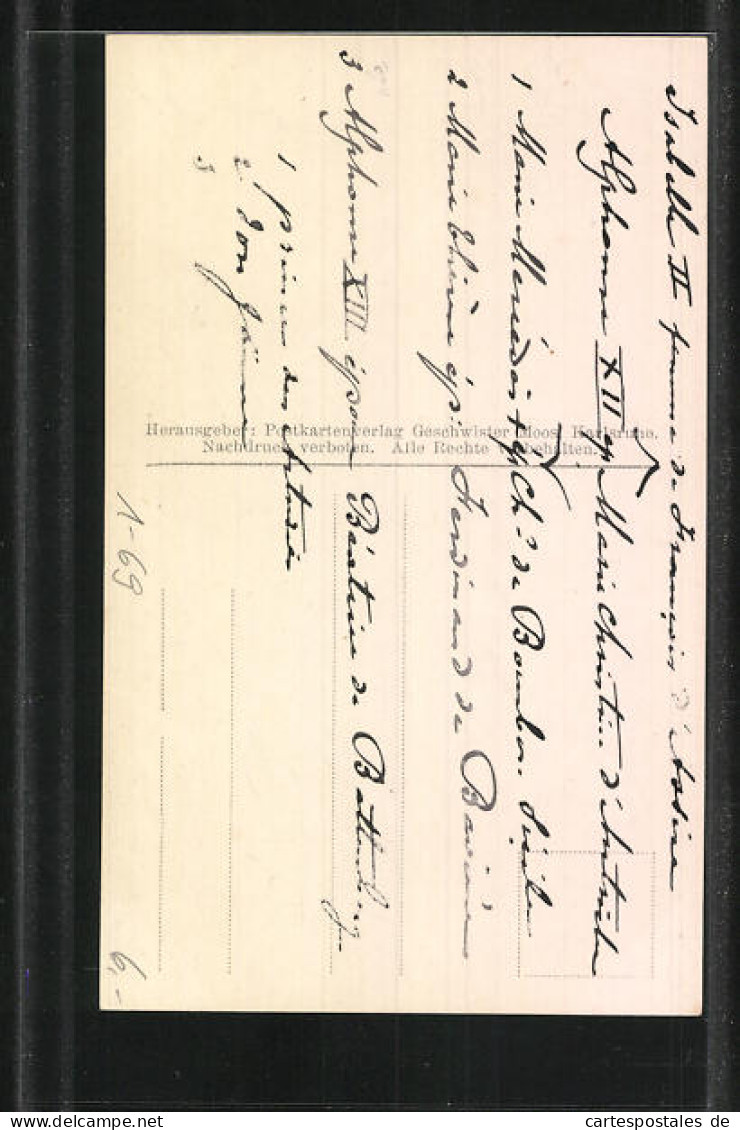 Isabelle II femme de François d'Assise
Alphonse XII ép Marie Christine d'Autriche
1 Marie Mercédès + ép Ch. de Bourbon Sicile
2 Marie Thérèse ép. Ferdinand de Bavière
3 Alphonse XIII épouse Béatrice de Battenberg
1 prince des Asturies
2 don Jaime
3
Herausgeber: Postkartenverlag Geschwister Moos, Karlsruhe.
Nachdruck verboten. Alle Rechte vorbehalten.
1-69
6,-
delcampe.net
cartespostales de